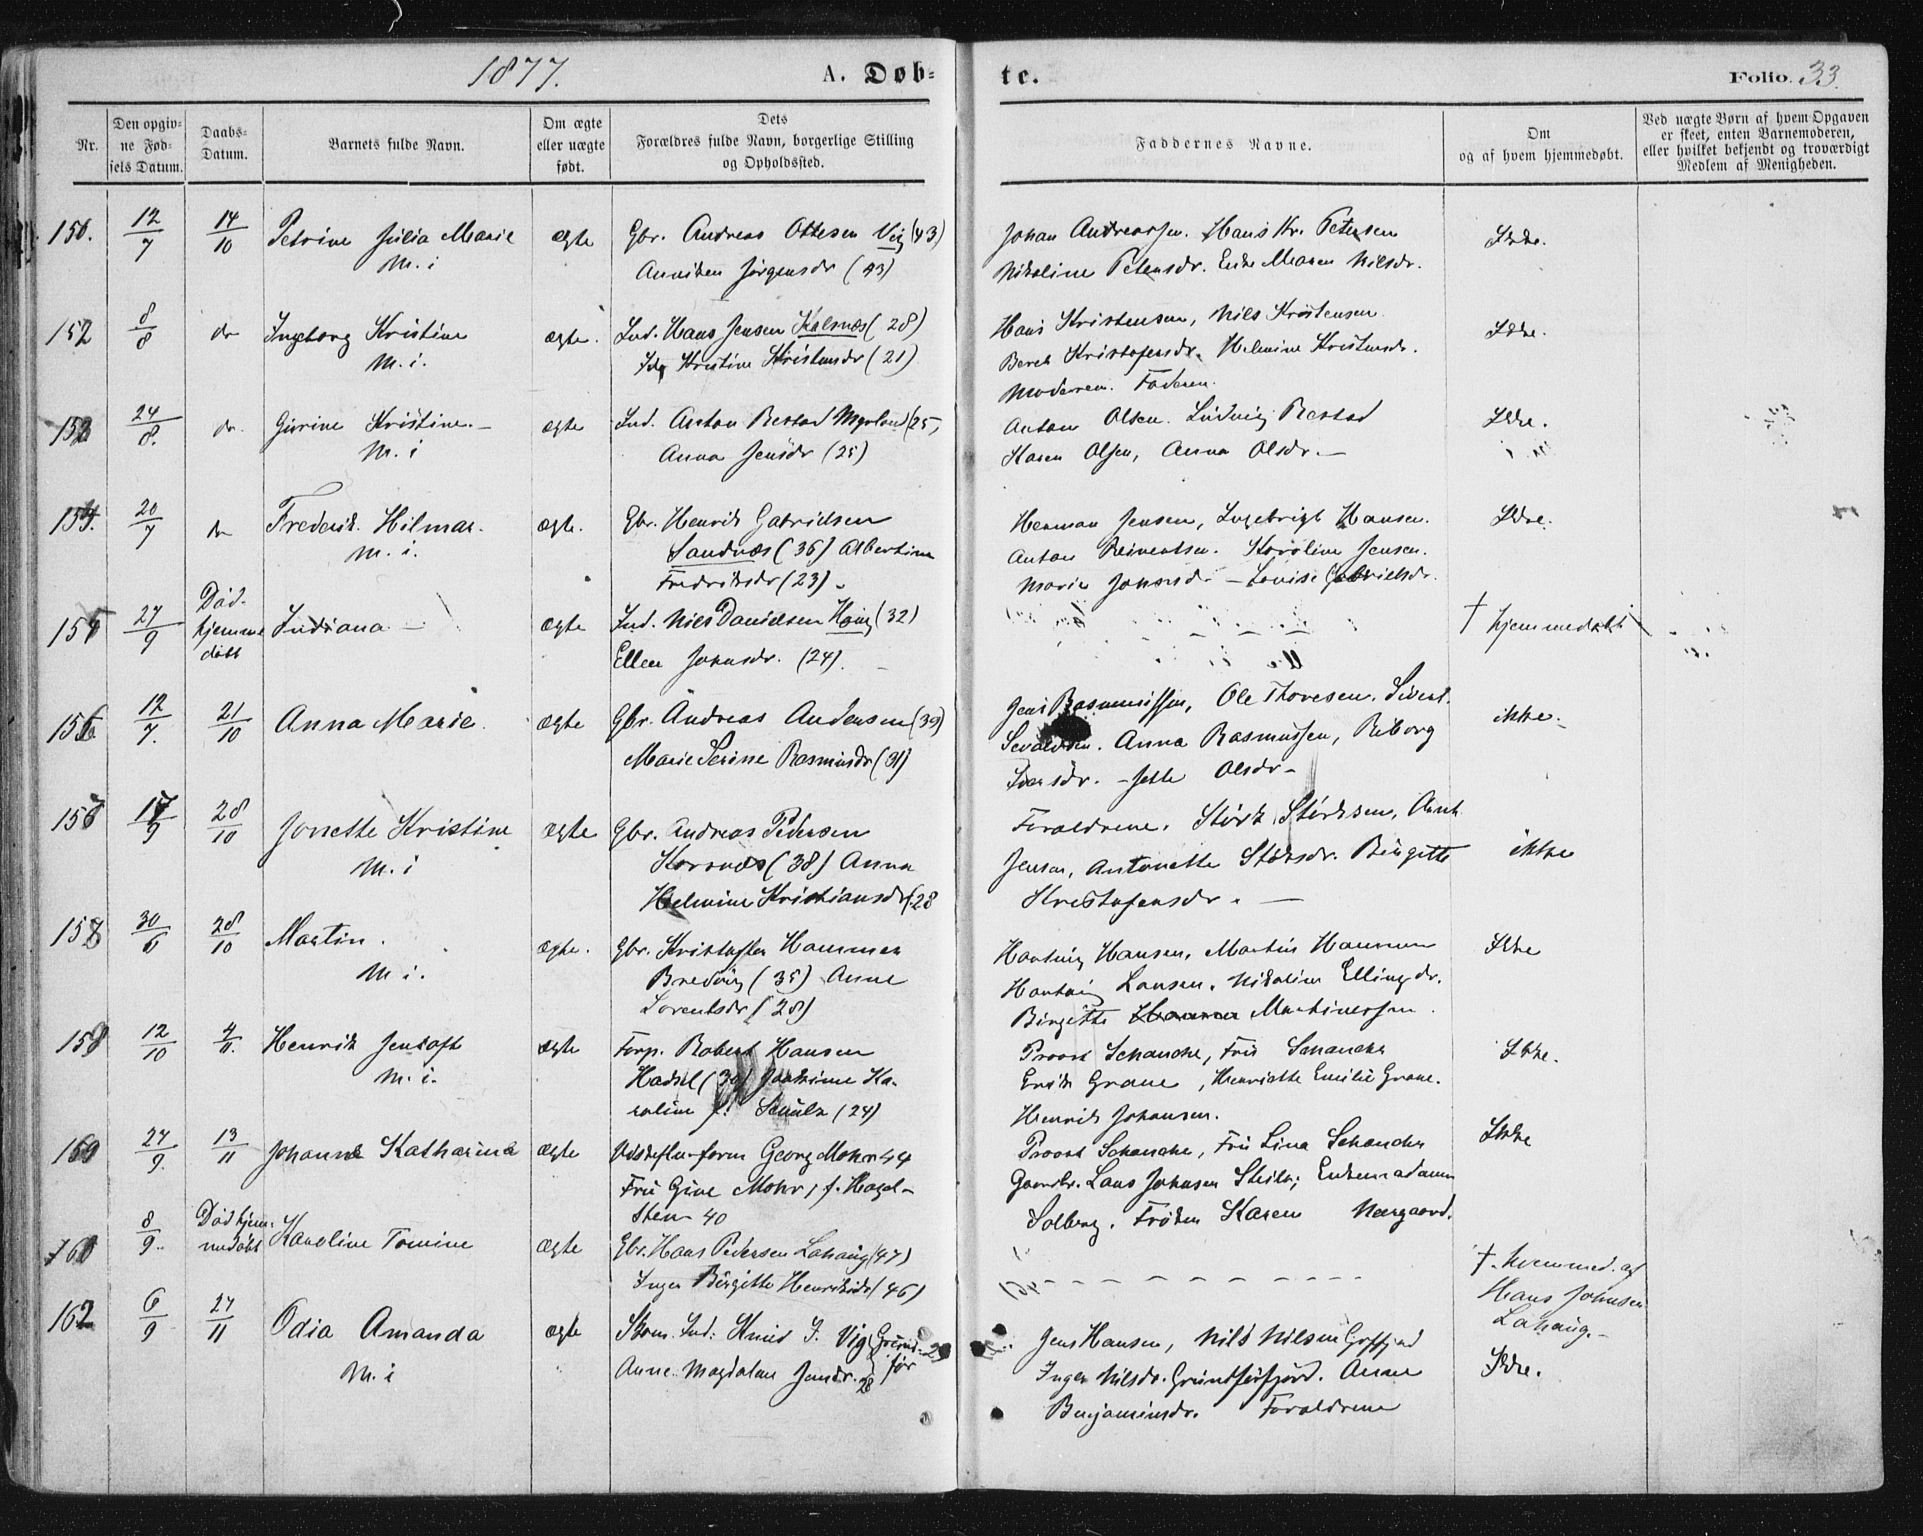 1877.
A. Døb-
te.
Folio. 33.
Nr.
Den opgiv-
ne Fød-
sels Datum.
Daabs-
Datum.
Barnets fulde Navn.
Om ægte
eller uægte
født.
Dets
Forældres fulde Navn, borgerlige Stilling
og Opholdssted.
Faddernes Navne.
Om
og af hvem hjemmedøbt.
Ved uægte Børn af hvem Opgaven
er skeet, enten Barnemoderen,
eller hvilket bekjendt og troværdigt
Medlem af Menigheden.
12/7 14/10 Petrine Julia Marie ægte Gbr. Andreas Ottesen Vig (43)
M. i Anniken Jørgensdr (43)
Johan Andreassen. Hans Kr. Petersen Ikke.
Nikoline Petersdr. Enke Maren Nilsdr.
152 8/8 do Ingeborg Kristine ægte. Ind. Hans Jensen Kalsnæs (28)
M. i. Kristine Kristensdr (21)
Hans Kristensen, Nils Kristensen Ikke.
Beret Kristofersdr. Helmine Kristensdr.
Moderen. Faderen.
24/8. do Gurine Kristine. ægte Ind. Anton Restad Myrland (25)
M. i Anna Jensdr (25)
Anton Olsen. Ludvig Restad Ikke.
Karen Olsen, Anna Olsdr. —
154. 20/7 do Frederik Hilmar. ægte. Gbr. Henrik Gabrielsen
M. i. Sandnæs (36) Albertine
Fredriksdr (23).
Herman Jensen, Ingebrigt Hansen. Ikke.
Anton Reinertsen. Karoline Jensen.
Marie Johnsdr — Lovise Gabrielsdr.
155 27/9 Død
hjemme
døbt
Indiana — ægte Ind. Nils Danielsen (32)
Ellen Johnsdr. (24).
† hjemmedøbt
156 12/7. 21/10 Anna Marie. ægte Gbr. Andreas Andersen (39)
Marie Serine Rasmusdr (31)
Jens Rasmussen, Ole Thoresen. Sivert ikke.
Anna Rasmussen, Riborg
Iversdr. — Jette Olsdr —
17/9 28/10 Jonette Kristine ægte Gbr. Andreas Pedersen
M. i Korsnæs (38) Anna
Helmine Kristiansdr (28
Forældrene. Størk Størksen, Arnt
Jensen, Antonette Størksdr. Birgitte ikke
Kristofersdr. —
158 30/6 28/10 Martin. ægte. Gbr. Kristoffer Hammer
M. i. Bredvig (35) Anne
Lorentsdr (28)
Hartvig Hansen, Martin Hammer Ikke
Hartvig Larsen. Nikoline Ellingsdr.
Birgitte Martinessen.
159 12/10 4/11. Henrik Jentoft ægte Forp. Robert Hansen
M. i. Hadsel (30) Joakime Ka-
roline f. Schultz (24)
Provst Schanche, Fru Schanche Ikke.
Erik Grane, Henriette Emilie Grane.
Henrik Johansen.
27/9. 13/11 Johanne Katharina ægte Georg Mohr 44
Fru Gine Mohr, f. Hagel-
sten 40
Provst Schanche, Fru Lina Schanche Ikke
Gaardbr. Lars Johnsen Steiro; Enkemadame
Solberg. Frøken Karen Nørgaard.
8/9. Død hjem-
medøbt
Karoline Tomine ægte Gbr. Hans Pedersen Lahaug (47)
Inger Birgitte Henriksdr (46)
† hjemmed. af
Hans Johnsen
Lahaug.
162 6/9 27/11 Odia Amanda ægte Ind: Knud J. Vig
M. i Anne Magdalena Jensdr. 28
Jens Hansen, Nils Nilsen
Ikke.
Inger Nilsdr. Grundførfjord. Anne
Benjaminsdr. Forældrene